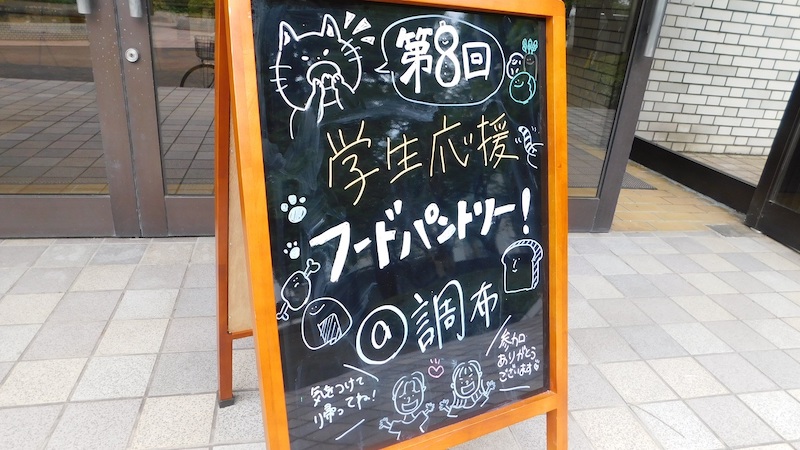 第8回
学生応援
フードパントリー!
@調布
参加
ありがとう
ございます
気をつけて
り帰ってね!